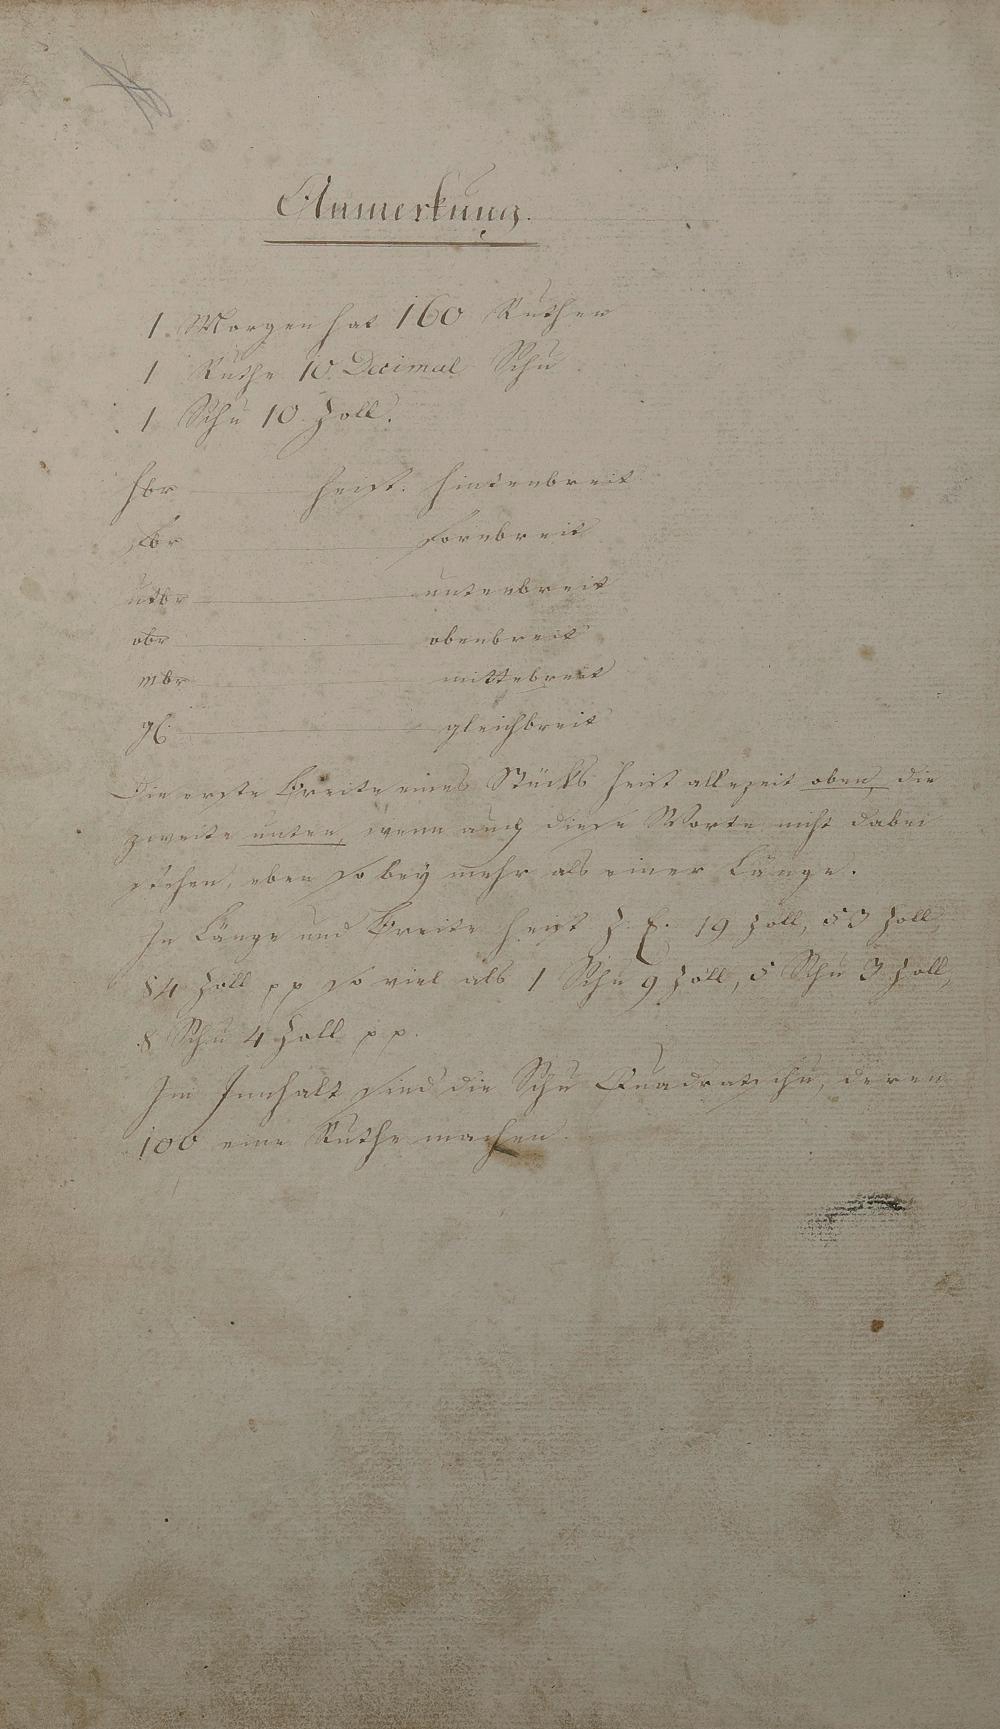 Anmerkung.
1. Morgen hat 160 Ruthen
1 Ruthe 10. Decimal Schu
1 Schu 10. Zoll.
hbr heist. hintenbreit
fbr fornbreit
utbr untenbreit
obr obenbreit
mbr mittebreit
gl. gleichbreit
Die erste Breite eines Stücks heist allezeit oben, die
zweite unten, wenn auch diese Worte nicht dabei
stehen, eben so bey mehr als einer Länge.
In Länge und Breite heist z. E. 19 Zoll, 53 Zoll,
84 Zoll pp so viel als 1 Schu 9 Zoll, 5 Schu 3 Zoll,
8 Schu 4 Zoll pp.
Im Innhalt sind die Schu Quadratschu, deren
100 eine Ruthe machen.